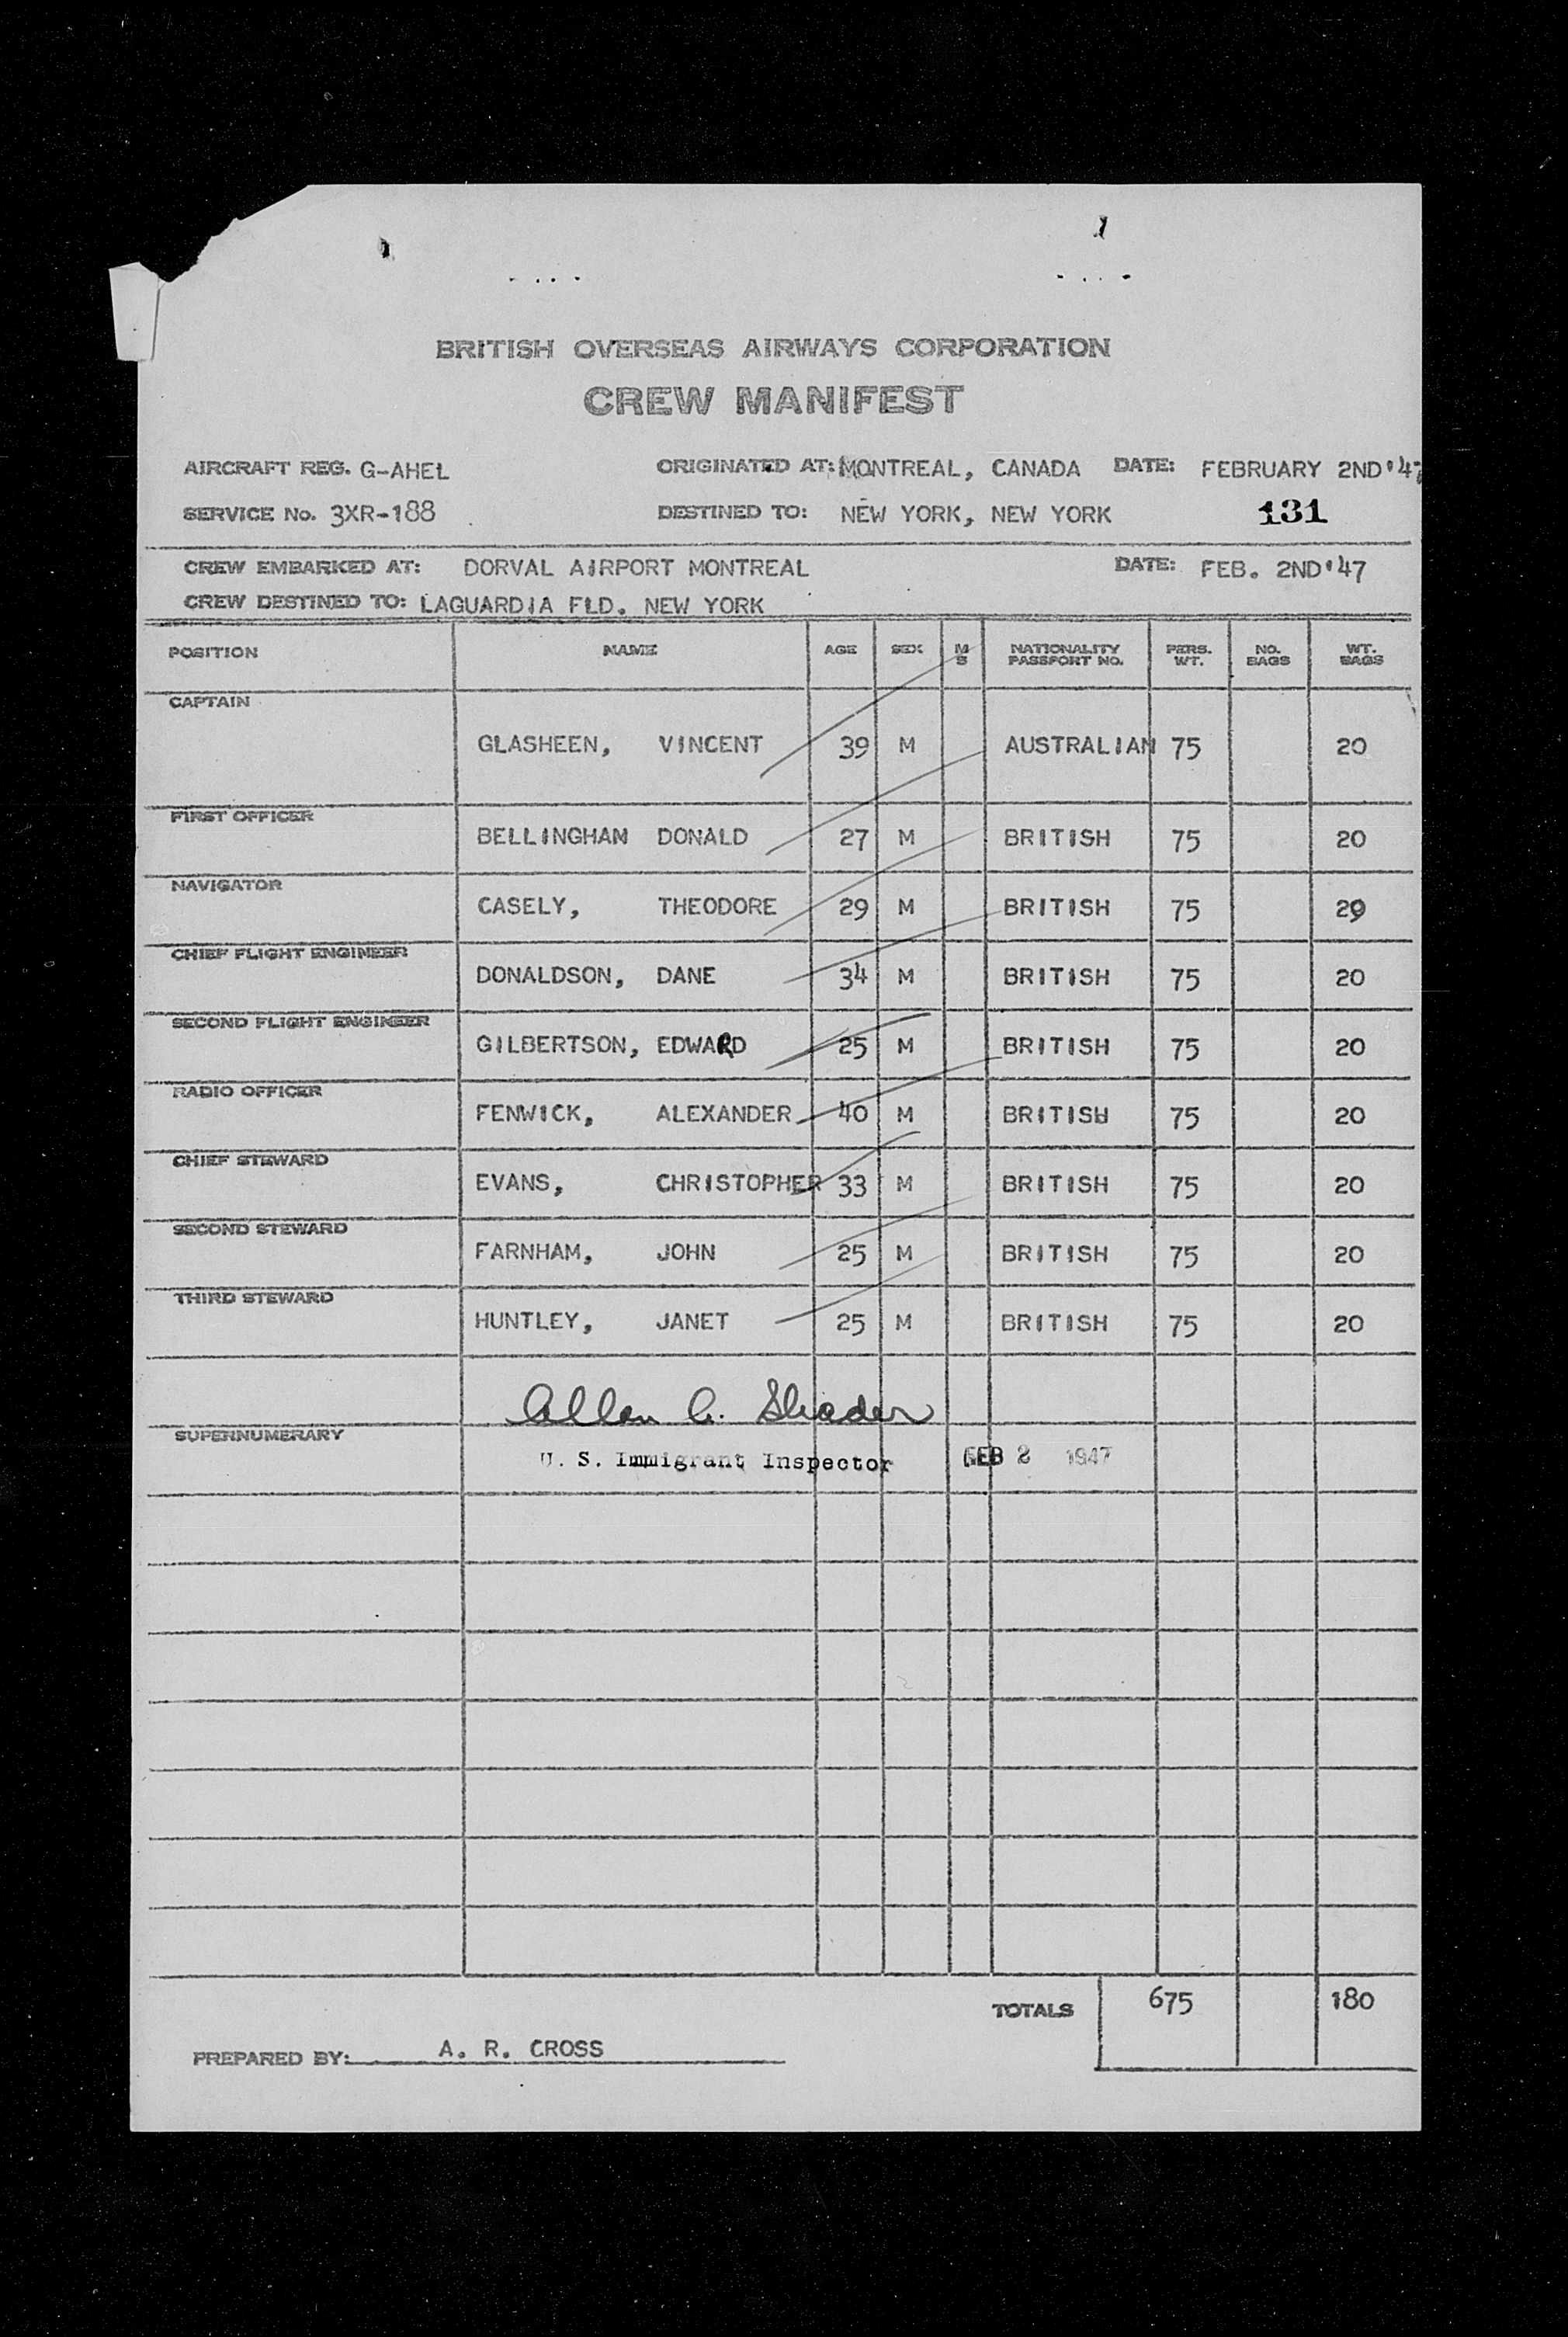 BRITISH OVERSEAS AIRWAYS CORPORATION
CREW MANIFEST
AIRCRAFT REG. G-AHEL ORIGINATED AT: MONTREAL, CANADA DATE: FEBRUARY 2ND'47
SERVICE No. 3XR-188 DESTINED TO: NEW YORK, NEW YORK 131
CREW EMBARKED AT: DORVAL AIRPORT MONTREAL DATE: FEB. 2ND'47
CREW DESTINED TO: LAGUARDIA FLD. NEW YORK
POSITION NAME AGE SEX M S NATIONALITY PASSPORT NO. PERS. WT. NO. BAGS WT. BAGS
CAPTAIN
GLASHEEN, VINCENT 39 M AUSTRALIAN 75 20
FIRST OFFICER
BELLINGHAM DONALD 27 M BRITISH 75 20
NAVIGATOR
CASELY, THEODORE 29 M BRITISH 75 29
CHIEF FLIGHT ENGINEER
DONALDSON, DANE 34 M BRITISH 75 20
SECOND FLIGHT ENGINEER
GILBERTSON, EDWARD 25 M BRITISH 75 20
RADIO OFFICER
FENWICK, ALEXANDER 40 M BRITISH 75 20
CHIEF STEWARD
EVANS, CHRISTOPHER 33 M BRITISH 75 20
SECOND STEWARD
FARNHAM, JOHN 25 M BRITISH 75 20
THIRD STEWARD
HUNTLEY, JANET 25 M BRITISH 75 20
Allan C. Shader
SUPERNUMERARY
U. S. Immigrant Inspector FEB 2 1947
TOTALS 675 180
PREPARED BY: A. R. CROSS